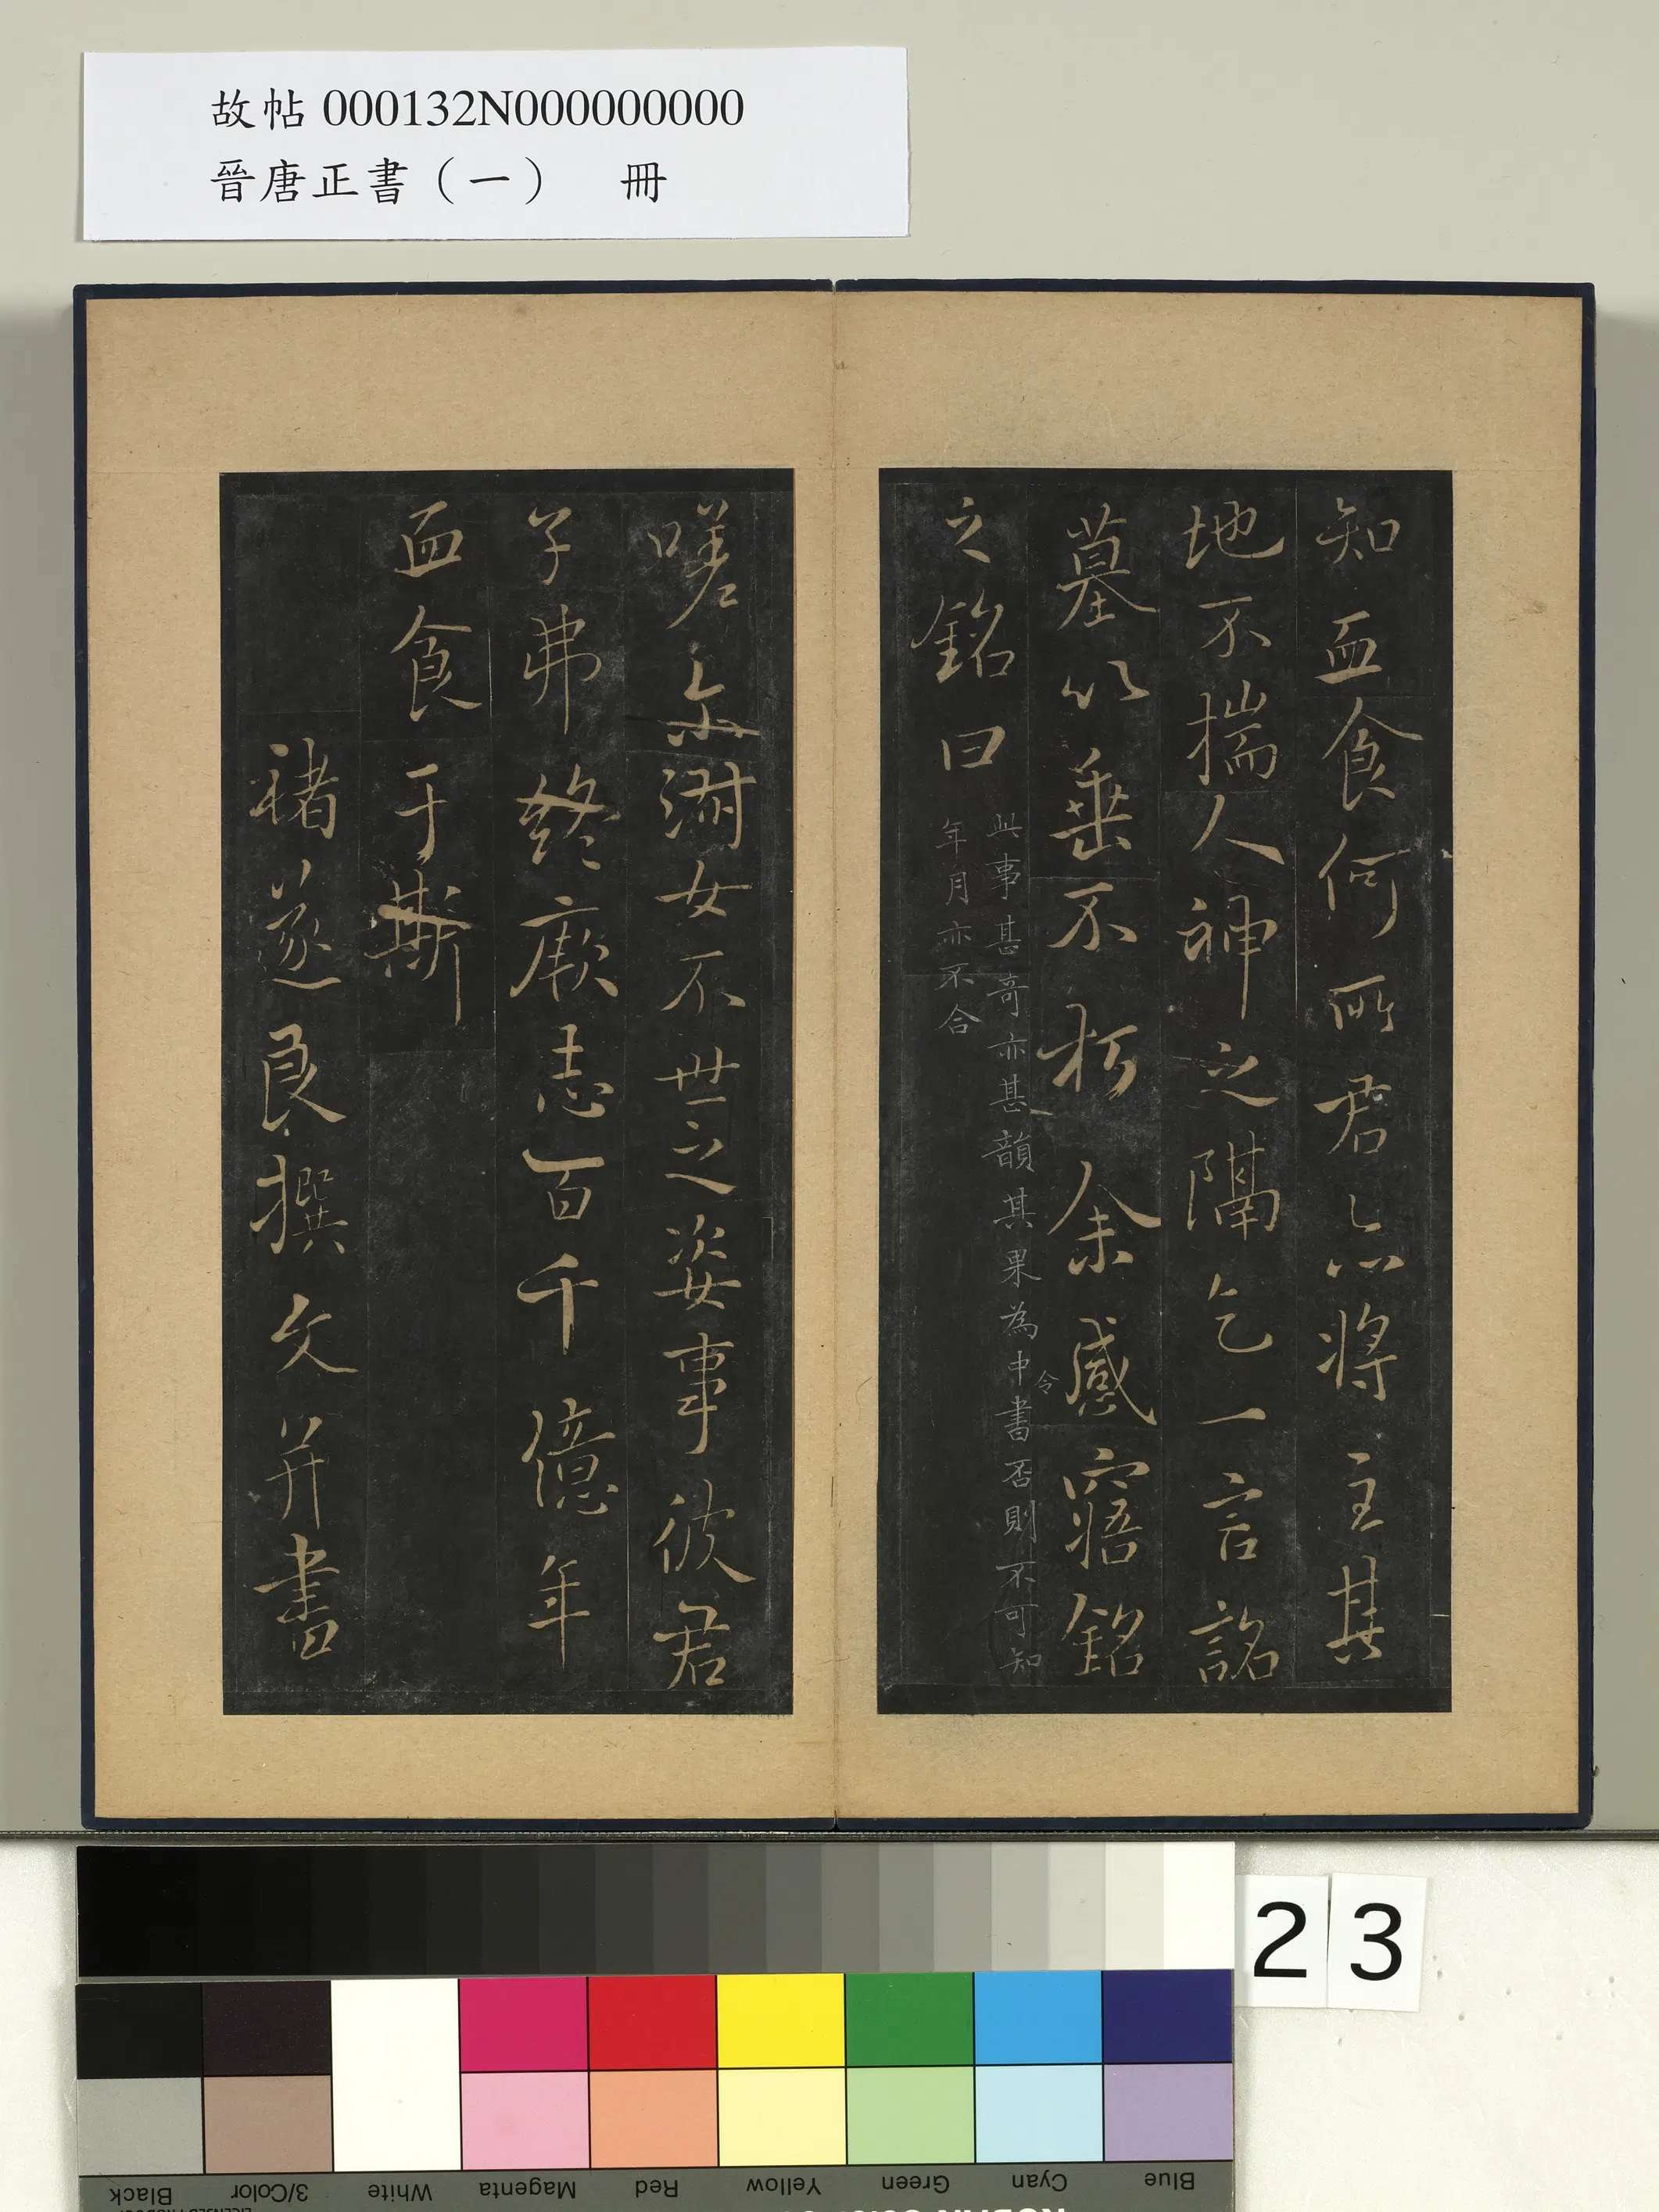 故帖 000132N000000000
晉唐正書（一） 冊
知血食何所君亦將主其
地不揣人神之隔乞一言詺
墓以垂不朽余感寤銘
之銘曰
此事甚奇亦甚韻其果為中書令否則不可知
年月亦不合
嗟尒淑女不世之姿事彼君
子弗終厥志百千億年
血食于斯
褚遂良撰文并書
23
Blue Cyan Green Yellow Red Magenta White 3/Color Black